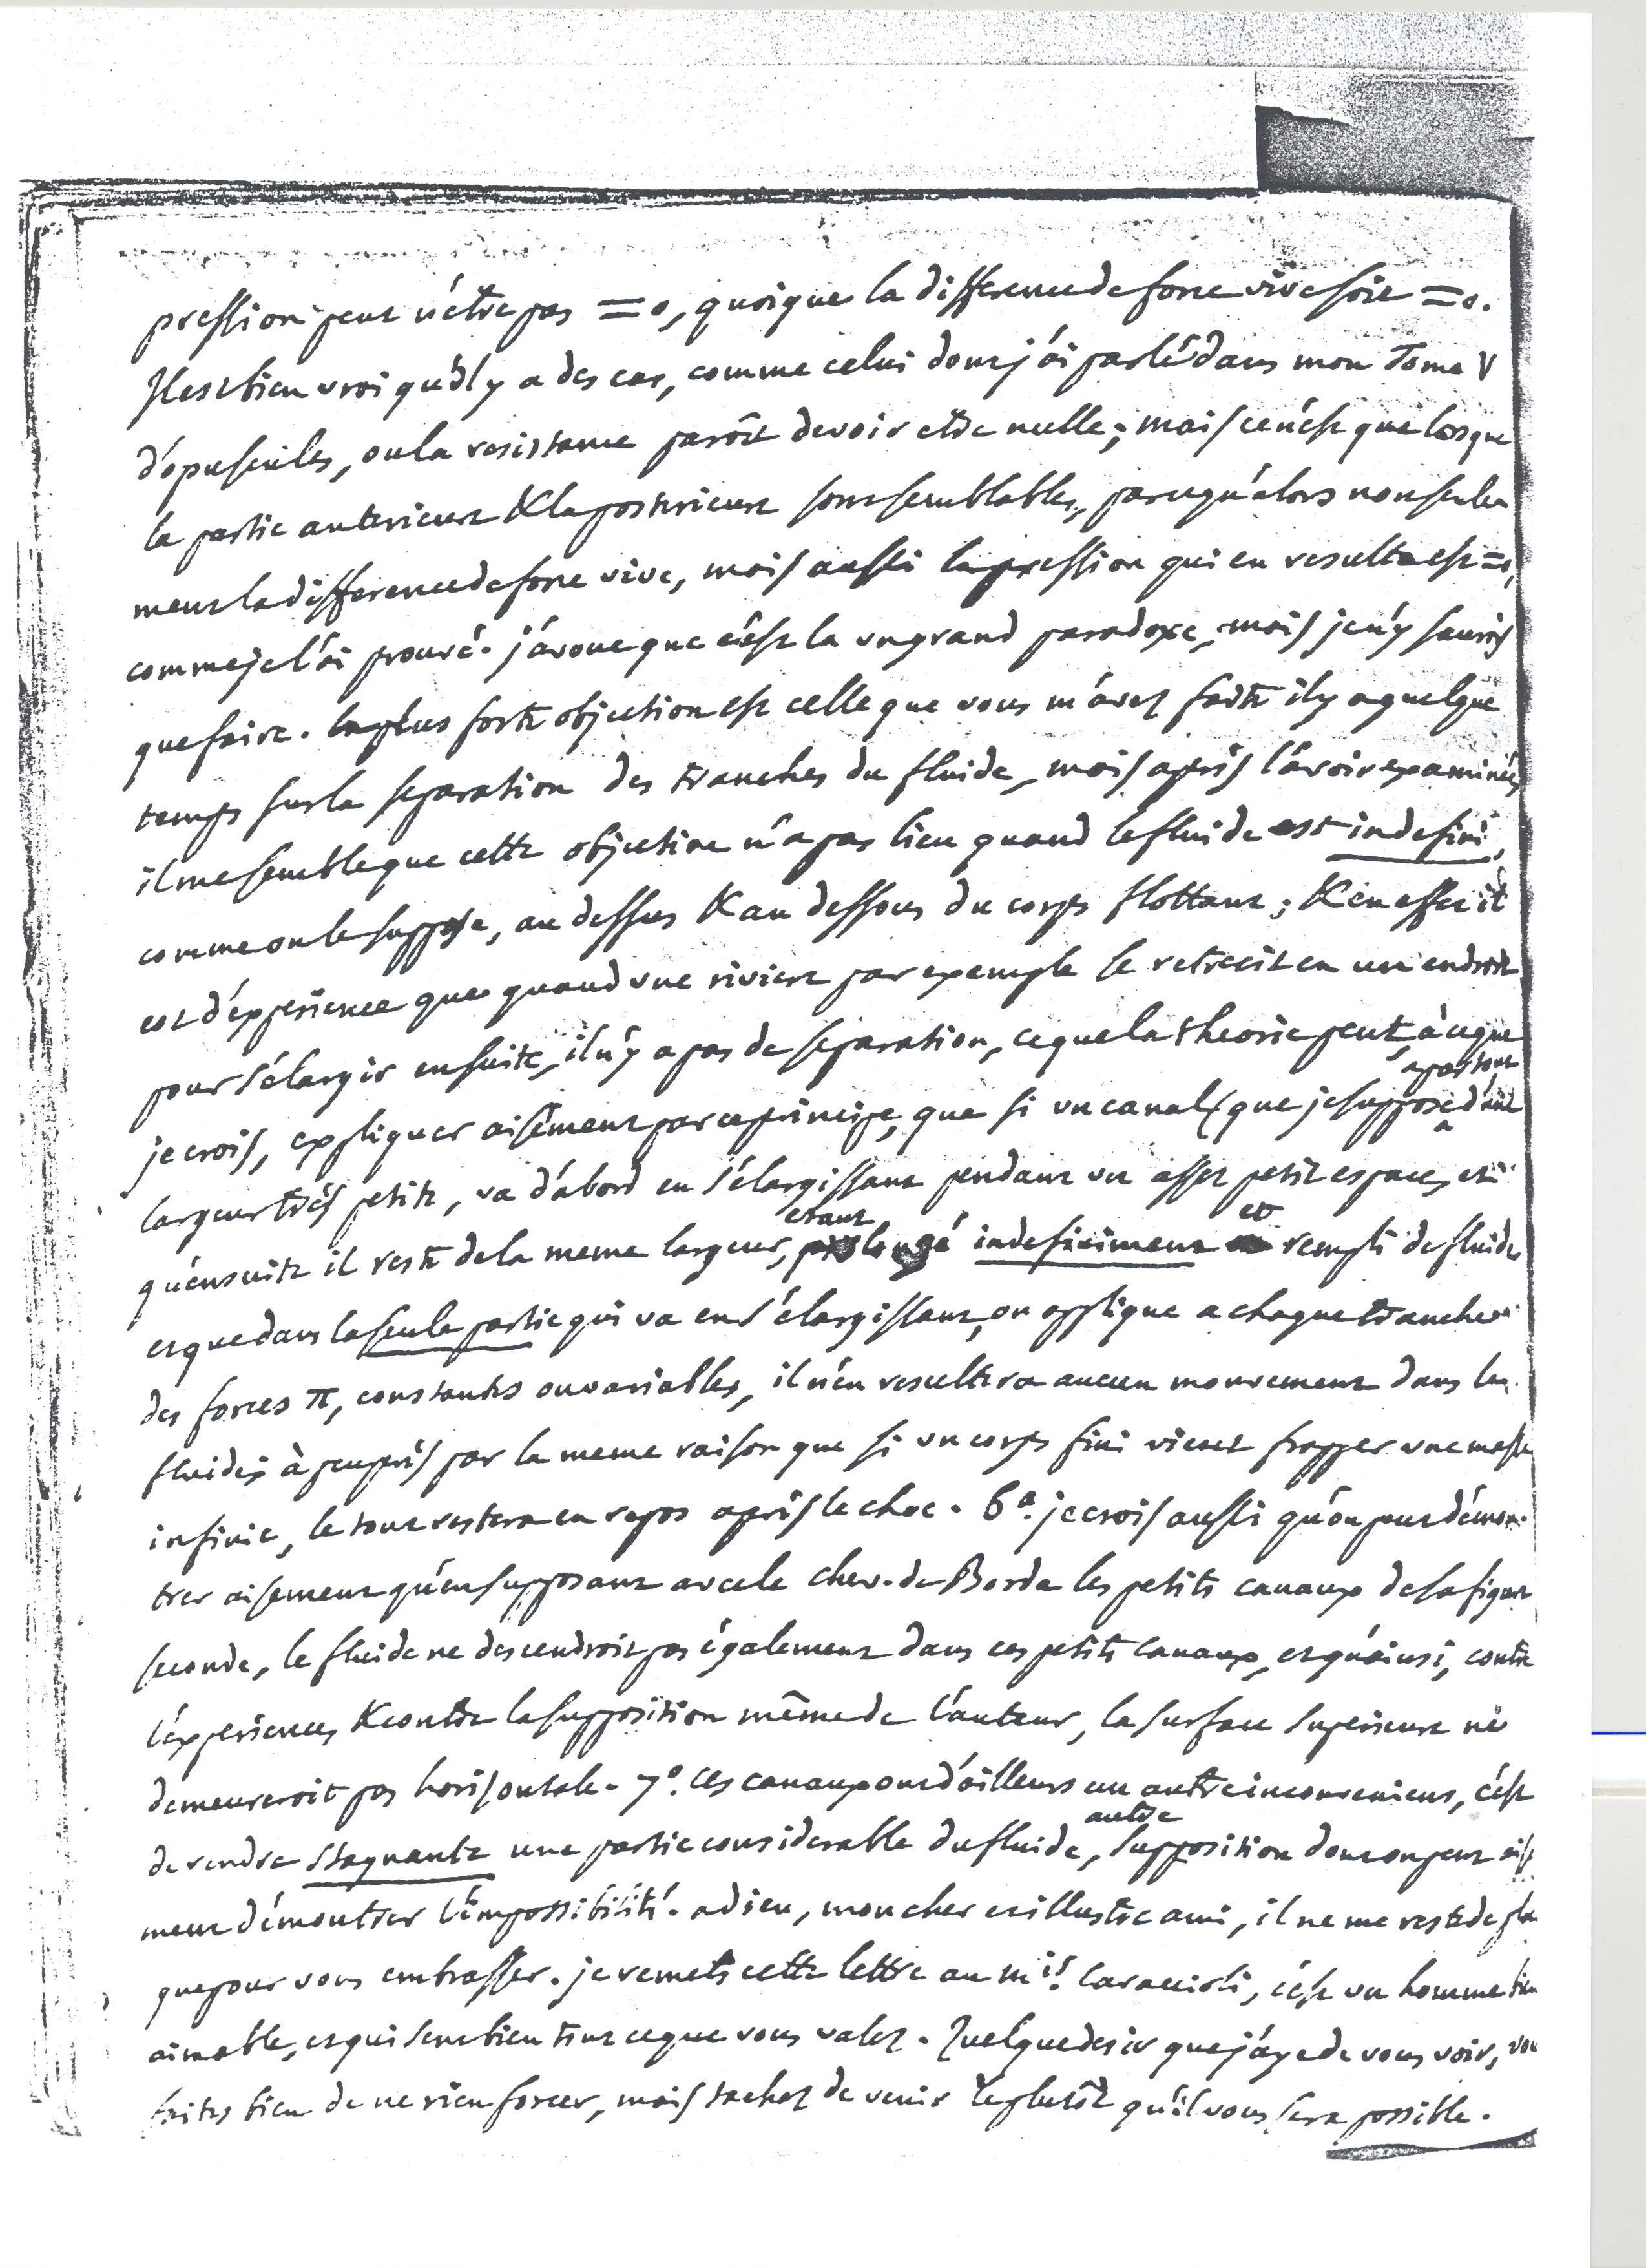 pression peut n'être pas = 0, quoique la difference de force vive soit = 0.
Il est bien vrai qu'il y a des cas, comme celui dont j'ai parlé dans mon Tome V
d'opuscules, ou la resistance paroît devoir etre nulle; mais ce n'est que lorsque
la partie anterieure & la posterieure sont semblables, parcequ'alors non seule-
ment la difference de force vive, mais aussi la pression qui en resulte est = 0,
comme je l'ai prouvé. j'avoue que c'est la un grand paradoxe, mais je n'y saurois
que faire. la plus forte objection est celle que vous m'avez faite il y a quelque
temps sur la separation des tranches du fluide, mais après l'avoir examinée,
il me semble que cette objection n'a pas lieu quand le fluide est indefini,
comme on le suppose, au dessus & au dessous du corps flottant; & en effet il
est d'experience que quand une riviere par exemple se retrecit en un endroit
pour s'élargir ensuite, il n'y a pas de separation, ce que la theorie peut, à ce que
je crois, expliquer aisément par ce principe, que si un canal (que je suppose apartout d'une
largeur très petite, va d'abord en s'élargissant pendant un assez petit espace, et
qu'ensuite il reste de la meme largeur, etant prolongé indefiniment et rempli de fluide
et que dans la seule partie qui va en s'élargissant, on applique a chaque tranche
des forces π, constantes ou variables, il n'en resultera aucun mouvement dans le
fluide, à peu près par la meme raison que si un corps fini vient frapper une masse
infinie, le tout restera en repos après le choc. 6°. je crois aussi qu'on peut démon-
trer aisement qu'en supposant avec le chev. de Borda les petits canaux de sa figure
seconde, le fluide ne descendroit pas également dans ces petits canaux, et qu'ainsi, contre
l'experience, & contre la supposition même de l'auteur, la surface superieure ne
demeureroit pas horisontale. 7°. Ces canaux ont d'ailleurs un autre inconvenient, c'est
de rendre stagnante une partie considerable du fluide, autre supposition dont on peut aisé
ment démontrer l'impossibilité. adieu, mon cher et illustre ami, il ne me reste de pla
que pour vous embrasser. je remets cette lettre au m.is Caraccioli, c'est un homme bien
aimable, et qui sent bien tout ce que vous valez. Quelque desir que j'aye de vous voir, vou
faites bien de ne rien forcer, mais tachez de venir le plutôt qu'il vous sera possible.